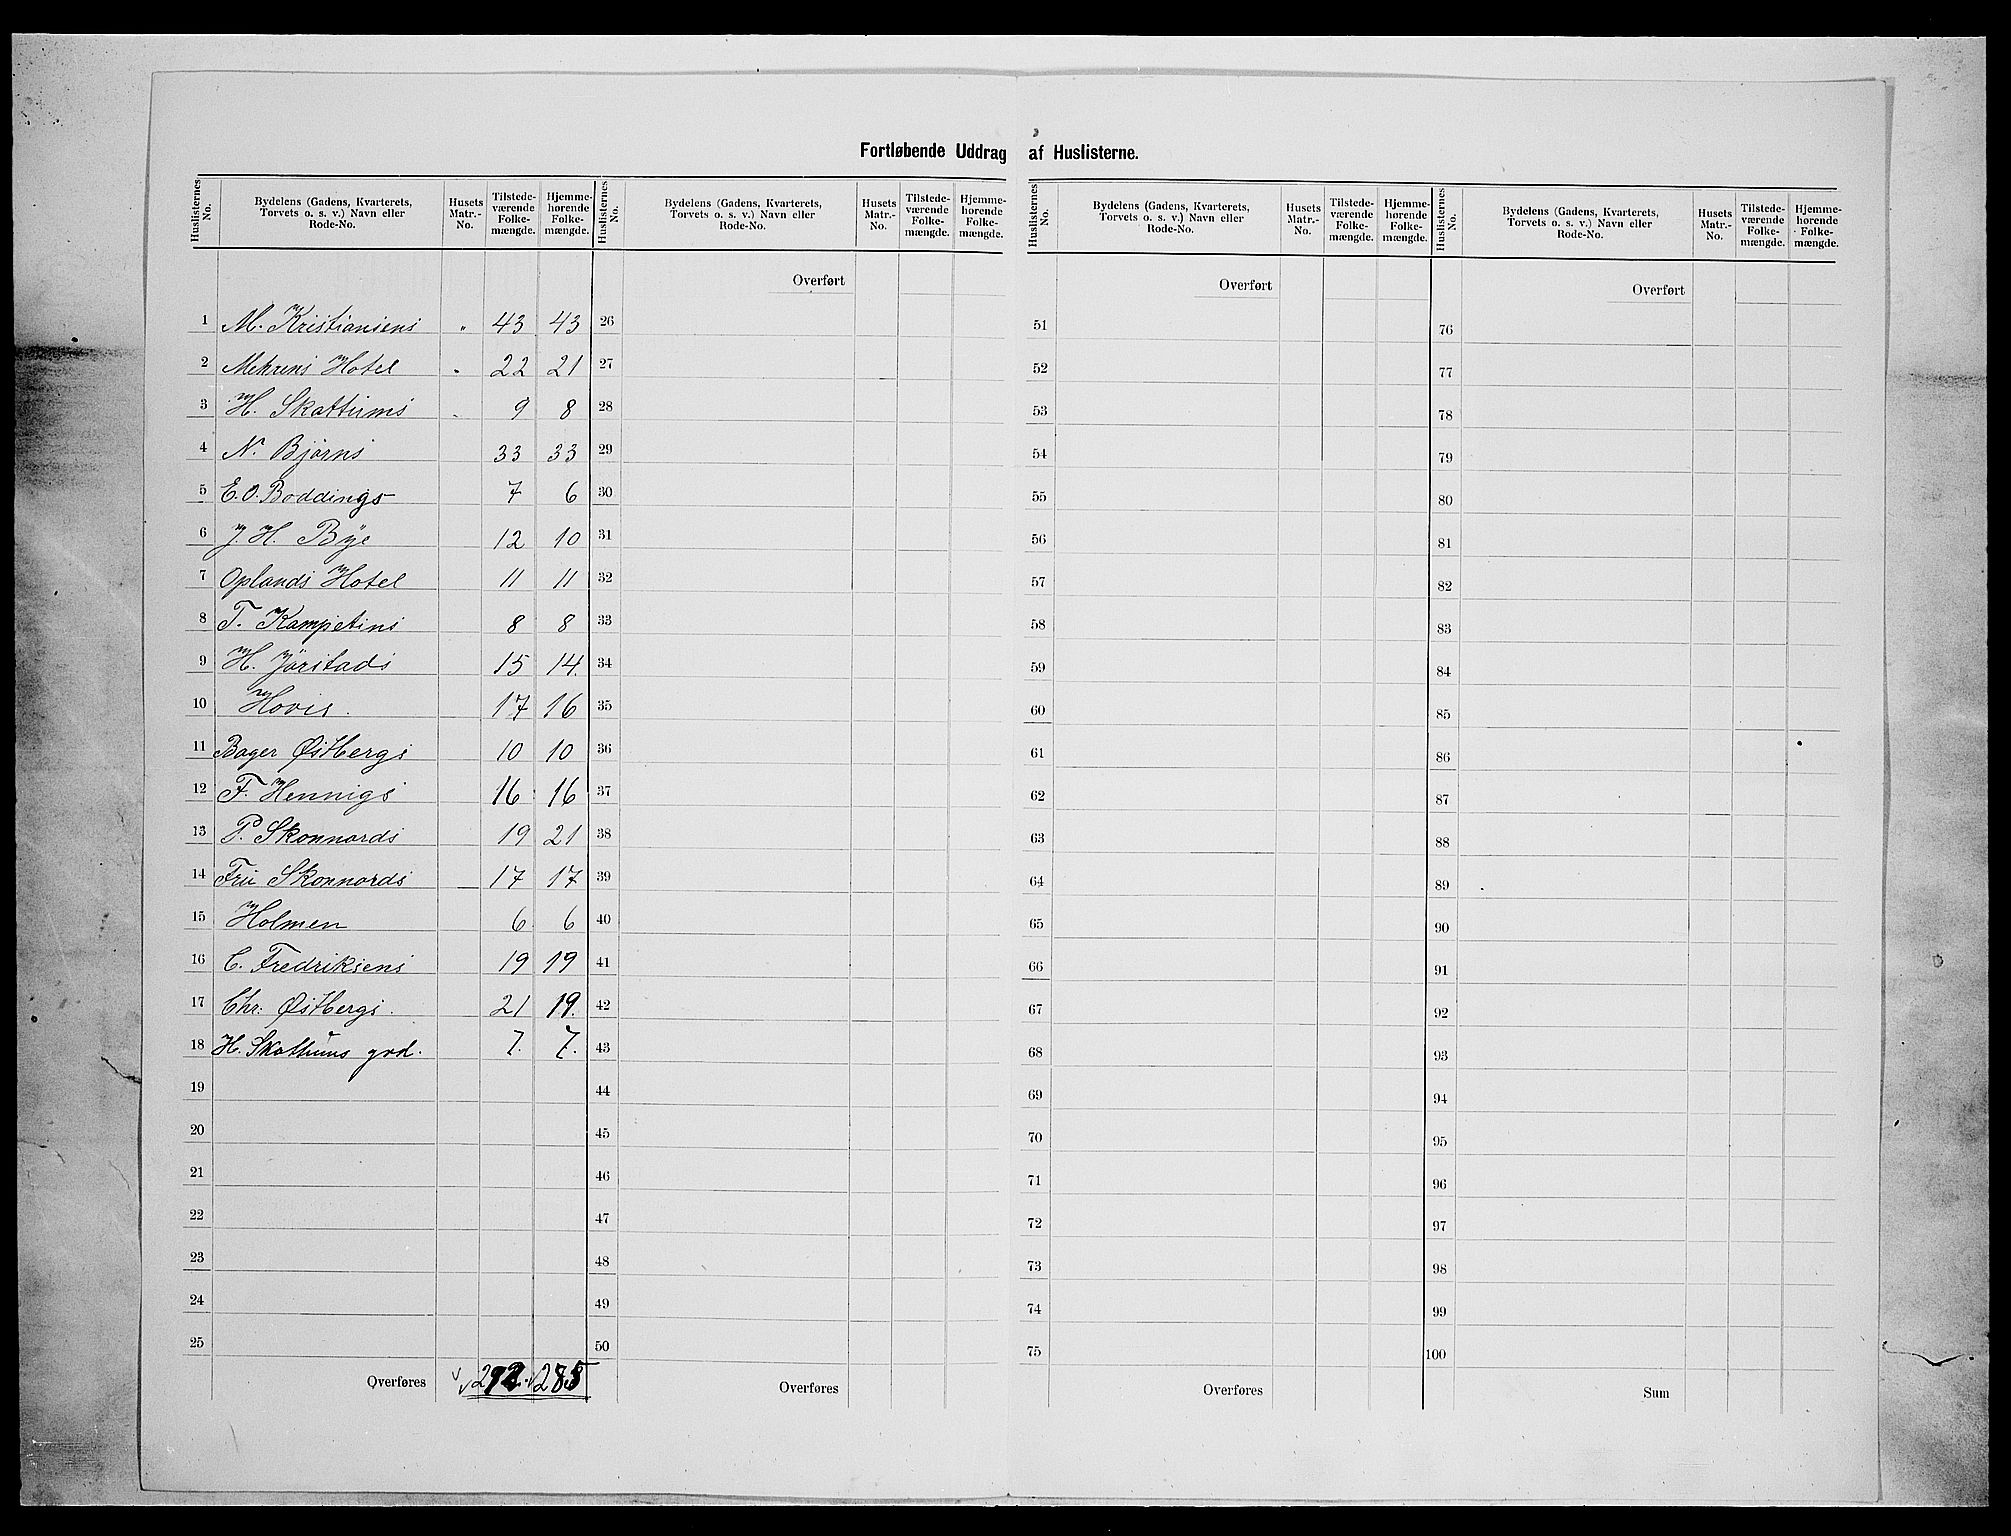 Fortløbende Uddrag af Huslisterne.
Huslisternes No. Bydelens (Gadens, Kvarterets, Torvets o. s. v.) Navn eller Rode-No. Husets Matr.-No. Tilstede-værende Folke-mængde. Hjemme-hørende Folke-mængde. Huslisternes No. Bydelens (Gadens, Kvarterets, Torvets o. s. v.) Navn eller Rode-No. Husets Matr.-No. Tilstede-værende Folke-mængde. Hjemme-hørende Folke-mængde. Huslisternes No. Bydelens (Gadens, Kvarterets, Torvets o. s. v.) Navn eller Rode-No. Husets Matr.-No. Tilstede-værende Folke-mængde. Hjemme-hørende Folke-mængde. Huslisternes No. Bydelens (Gadens, Kvarterets, Torvets o. s. v.) Navn eller Rode-No. Husets Matr.-No. Tilstede-værende Folke-mængde. Hjemme-hørende Folke-mængde.
Overført Overført Overført
1 M. Kristiansens " 43 43 26 51 76
2 Mehrens Hotel " 22 21 27 52 77
3 H. Skattums 9 8 28 53 78
4 N. Bjørns 33 33 29 54 79
5 E. O. Boddings 7 6 30 55 80
6 J. H. Bye 12 10 31 56 81
7 Oplands Hotel 11 11 32 57 82
8 T. 8 8 33 58 83
9 H. Jøritads 15 14. 34 59 84
10 Hovis. 17 16 35 60 85
11 Bager Østbergs 10 10 36 61 86
12 F. Hennigs 16 16 37 62 87
13 P. Skonnords 19 21 38 63 88
14 Fru Skonnords 17 17 39 64 89
15 Holmen 6 6 40 65 90
16 C. Fredriksens 19 19 41 66 91
17 Chr: Østbergs. 21 19. 42 67 92
18 H. Skattums grd. 7. 7. 43 68 93
19 44 69 94
20 45 70 95
21 46 71 96
22 47 72 97
23 48 73 98
24 49 74 99
25 50 75 100
Overføres 292. 285 Overføres Overføres Sum